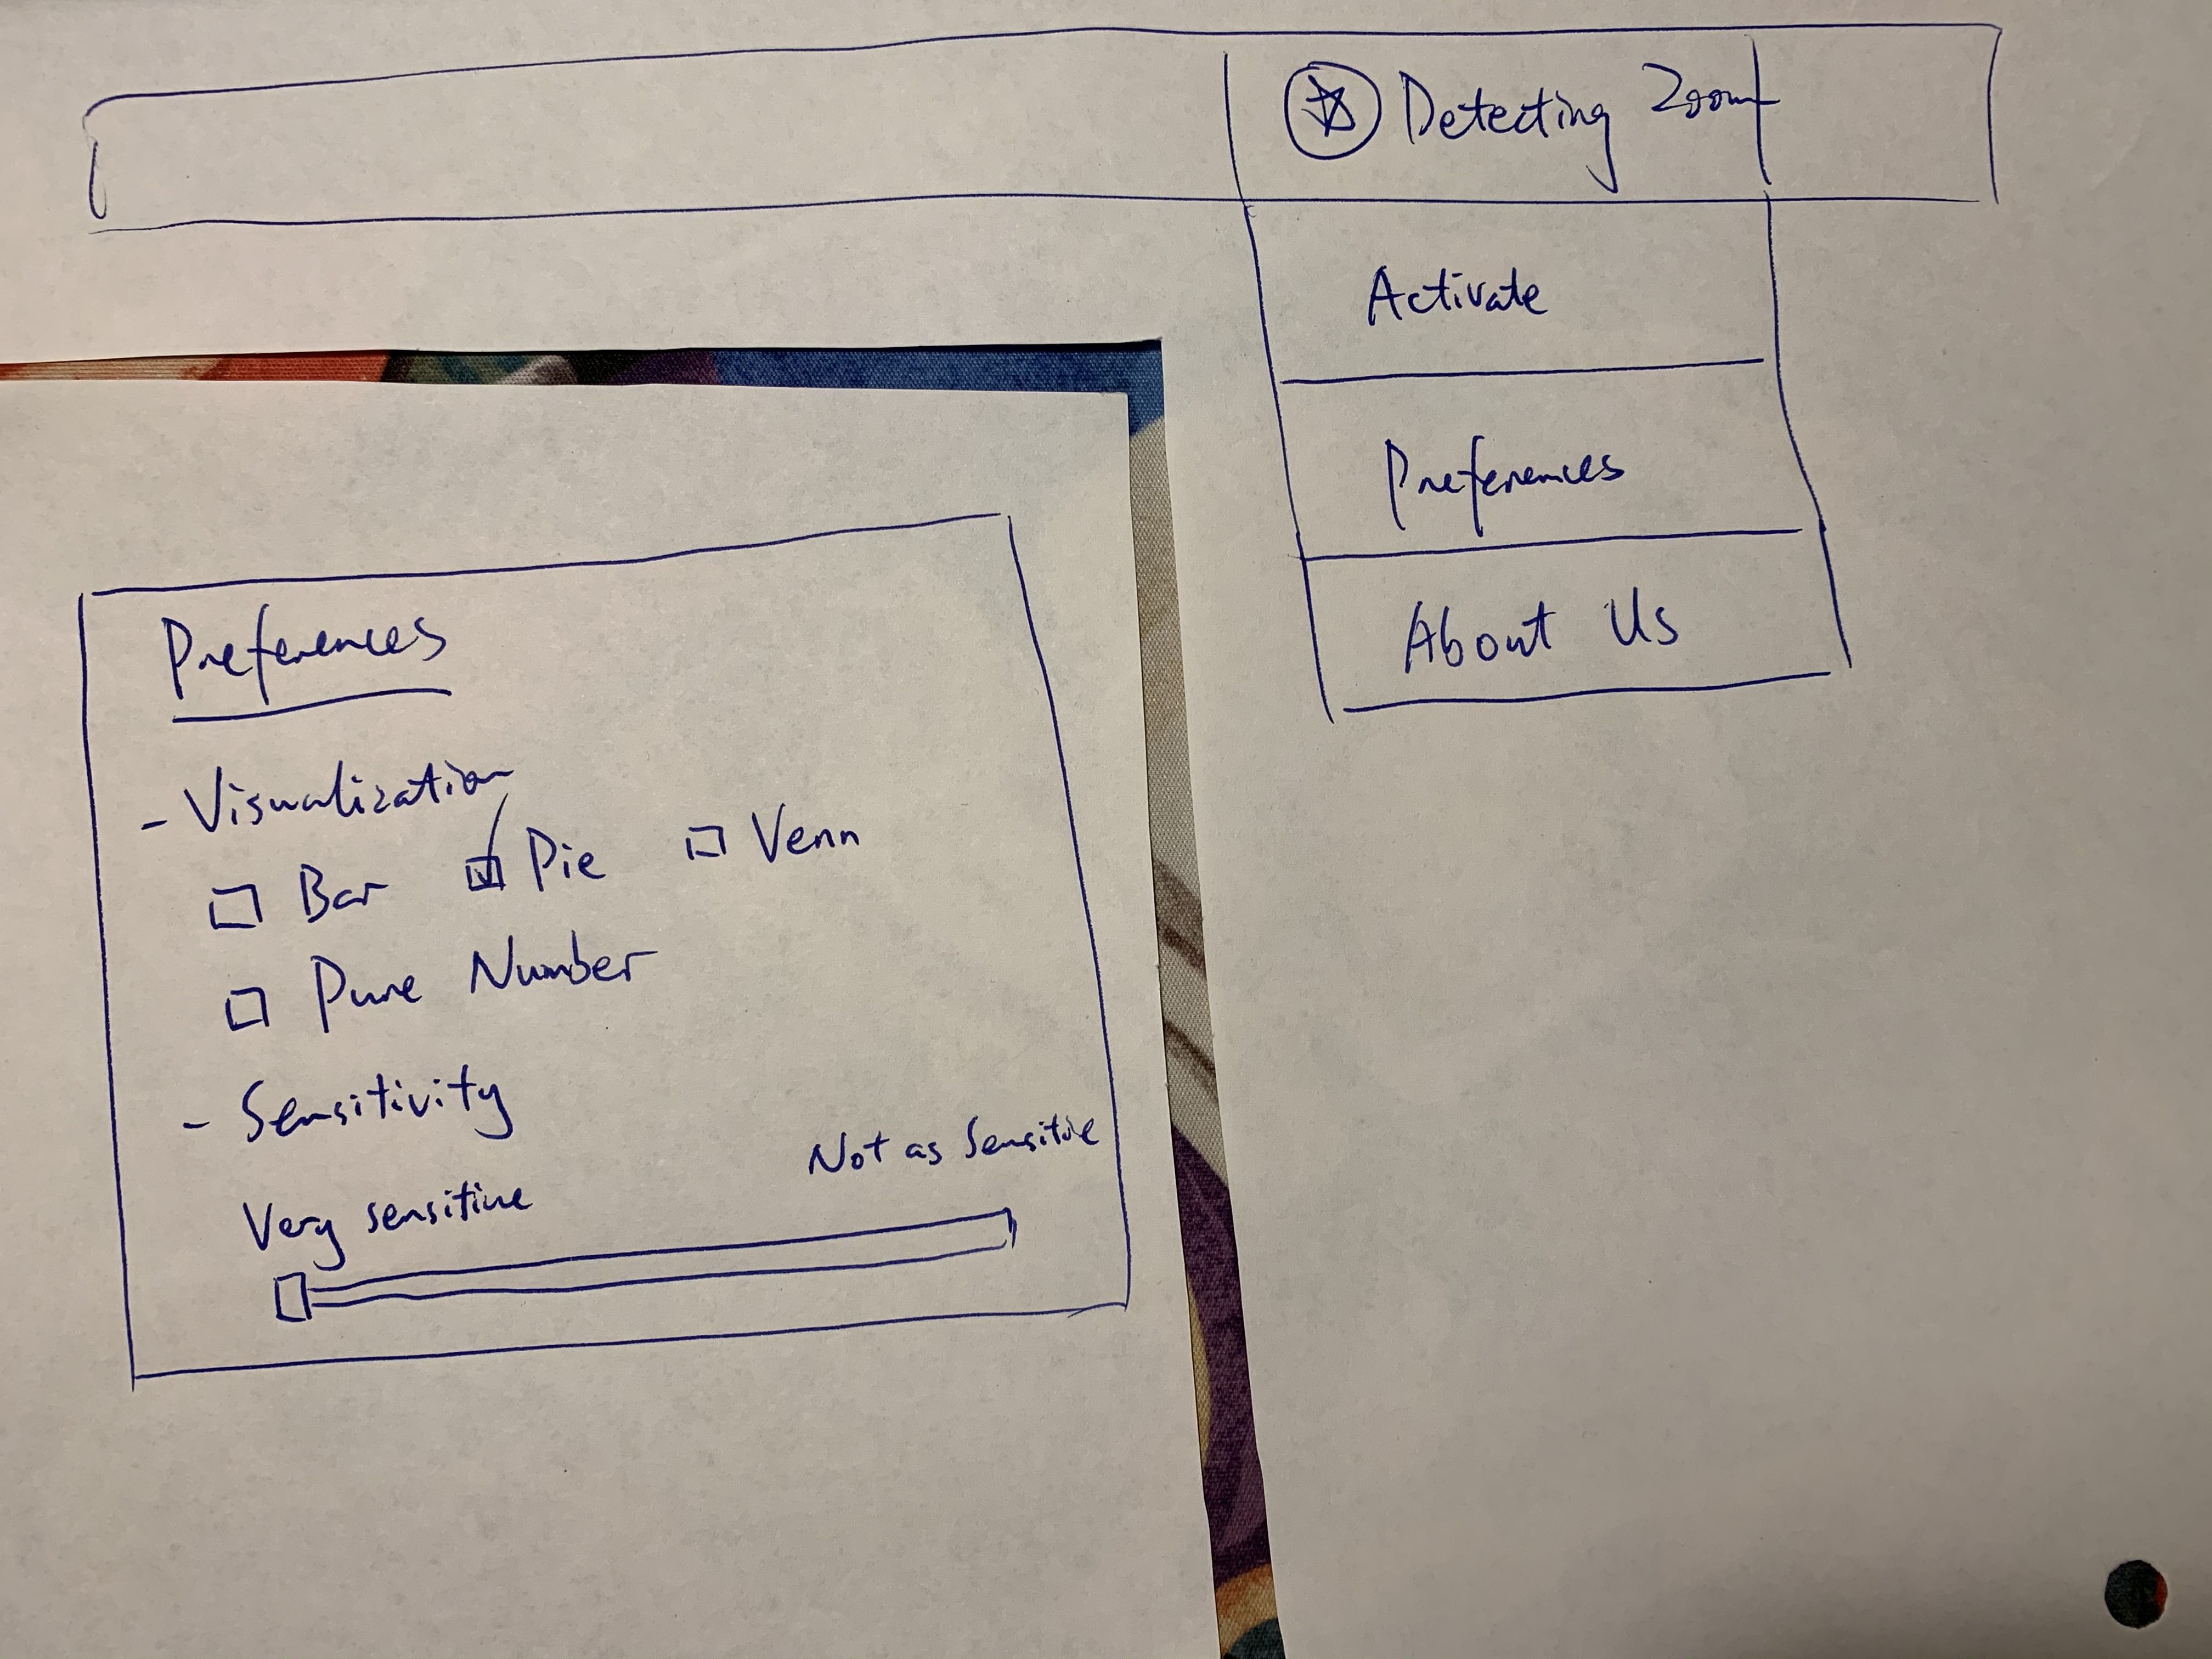 Detecting Zoom
Activate
Preferences
About Us
Preferences
- Visualization
Bar Pie Venn
Pure Number
- Sensitivity
Not as Sensitive
Very sensitive